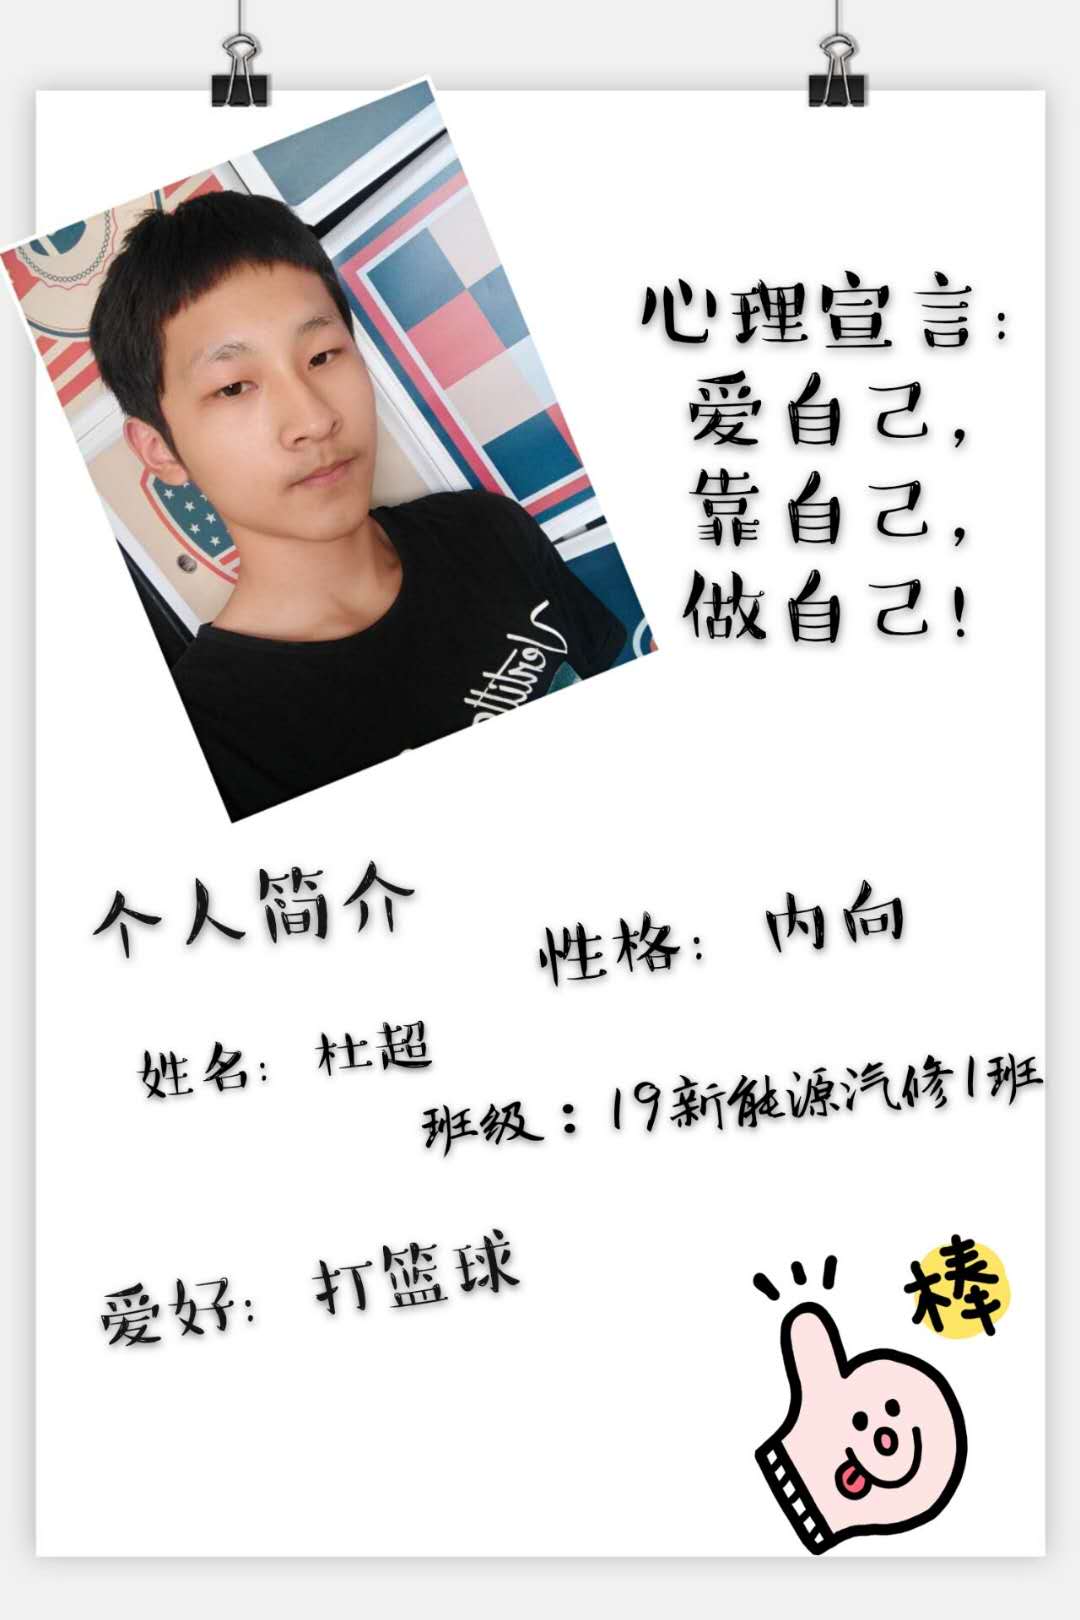 心理宣言：
爱自己，
靠自己，
做自己！
个人简介
性格： 内向
姓名： 杜超
班级：19新能源汽修1班
爱好： 打篮球
棒